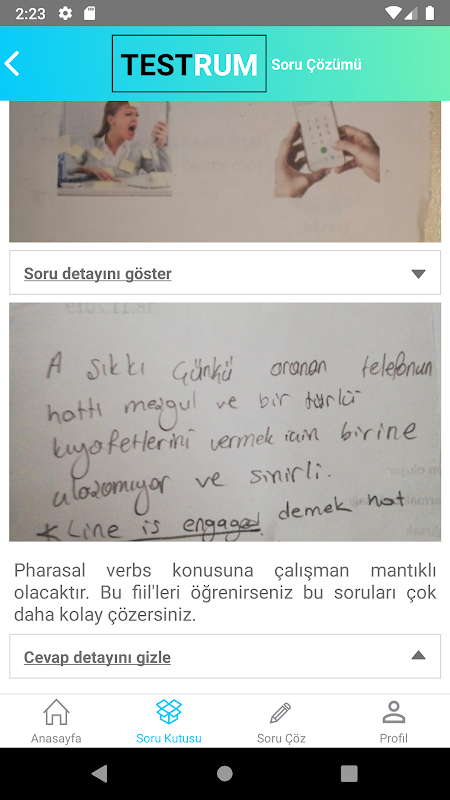 2:23
TESTRUM Soru Çözümü
Soru detayını göster
18.11.2019
A şıkkı Çünkü aranan telefonun
hattı meşgul ve bir türlü
kıyafetlerini vermek için birine
ulaşamıyor ve sinirli.
*Line is engaged demek hat
Pharasal verbs konusuna çalışman mantıklı
olacaktır. Bu fiil'leri öğrenirseniz bu soruları çok
daha kolay çözersiniz.
Cevap detayını gizle
Anasayfa Soru Kutusu Soru Çöz Profil